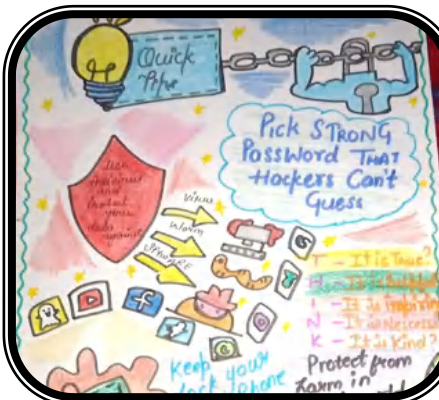 Quick
Tips
Pick STRONG
PassWord THAT
Hackers Can't
Guess
Use
Antivirus
and
Protect
your
data against
Virus
Worm
SPYWARE
T - It is True?
H - It is helpful
I - It is Inspiring
N - It is Necessary
K - It is Kind?
Keep your
lock phone
Protect from
harm in